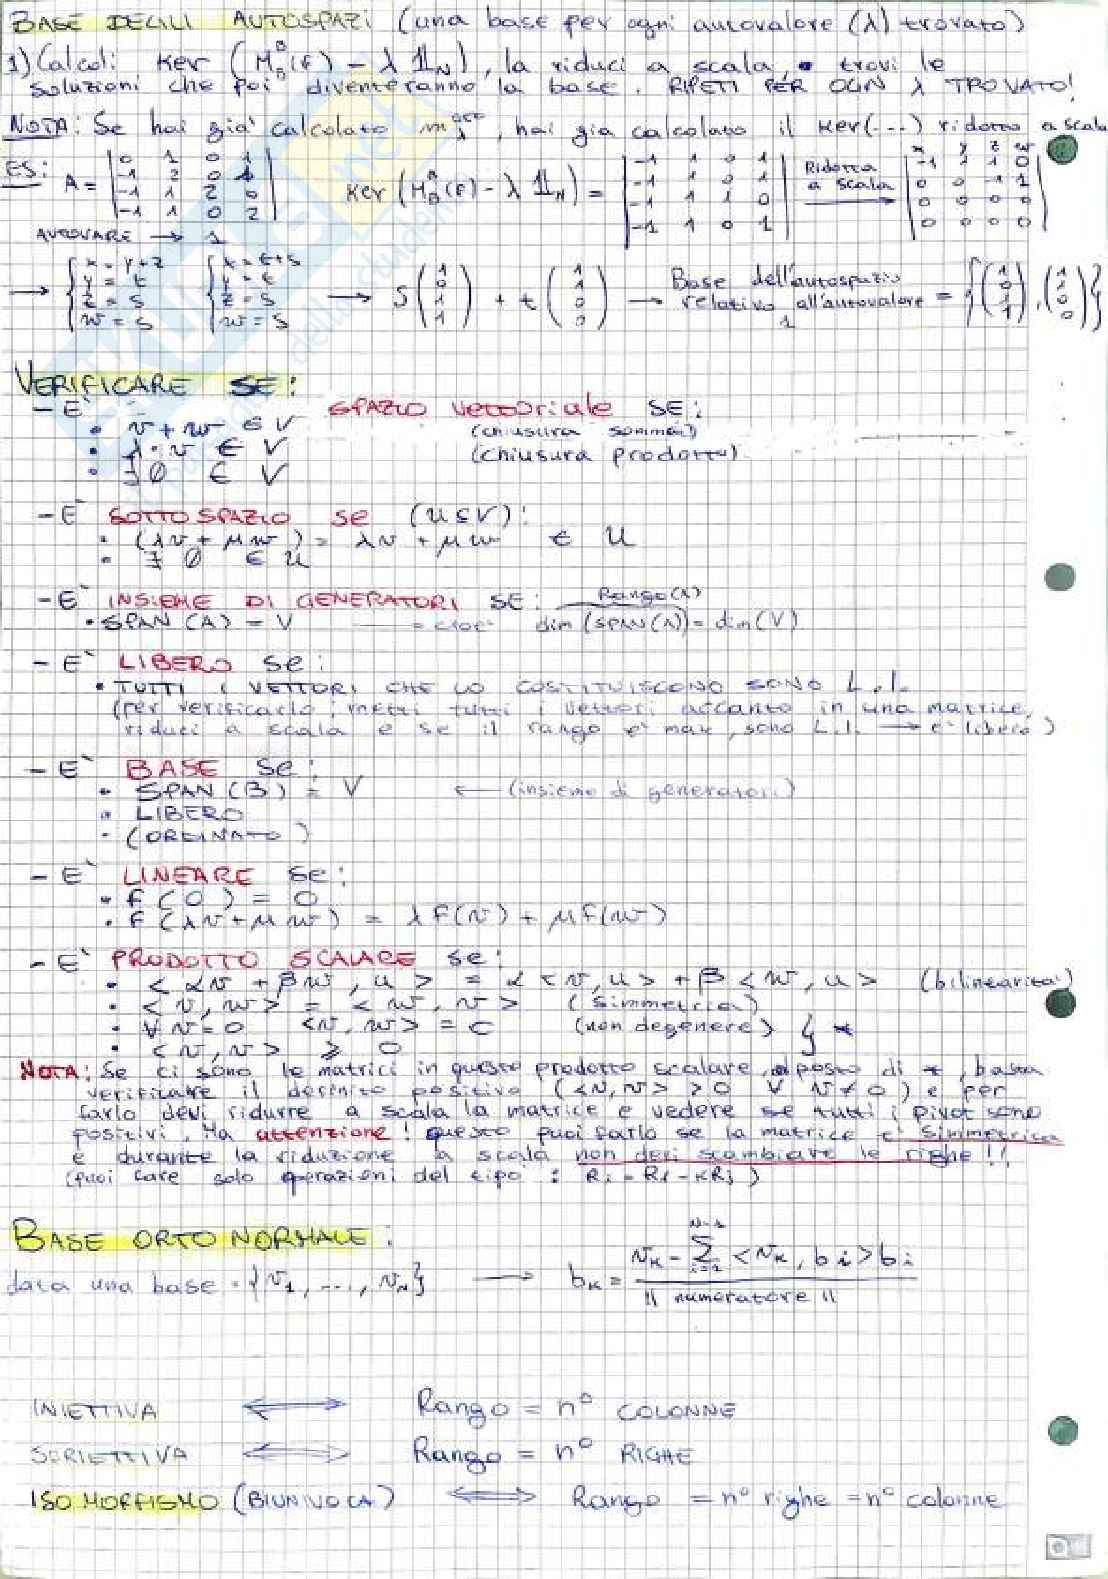 BASE DEGLI AUTOSPAZI (una base per ogni autovalore (λ) trovato)
1) Calcoli Ker (M_B^B(f) - λ 1l_N), la riduci a scala e trovi le
soluzioni che poi diventeranno la base. RIPETI PER OGNI λ TROVATO!
NOTA: Se hai già calcolato m_λ^geo, hai già calcolato il Ker(...) ridotto a scala
x y z w
ES: A = | 0 1 0 1 | -1 2 0 1 | -1 1 2 0 | -1 1 0 2 | Ker (M_B^B(f) - λ 1l_N) = | -1 1 0 1 | -1 1 0 1 | -1 1 1 0 | -1 1 0 1 | Ridotta a scala → | -1 1 1 0 | 0 0 -1 1 | 0 0 0 0 | 0 0 0 0 |
AUTOVALORE → 1
→ { x = y+z y = t z = s w = s { x = t+s y = t z = s w = s → s (1 0 1 1) + t (1 1 0 0) → Base dell'autospazio relativo all'autovalore 1 = { (1 0 1 1), (1 1 0 0) }
VERIFICARE SE:
- E' SPAZIO vettoriale SE:
• v + w ∈ V (chiusura somma)
• λ · v ∈ V (chiusura prodotto)
• ∃ 0 ∈ V
- E' SOTTOSPAZIO se (U ⊆ V):
• (λv + μw) = λv + μw ∈ U
• ∃ 0 ∈ U
- E' INSIEME DI GENERATORI SE: Rango(A)
• SPAN (A) = V cioè dim (SPAN(A)) = dim(V)
- E' LIBERO se:
• TUTTI I VETTORI CHE LO COSTITUISCONO SONO L.I.
(per verificarlo, metti tutti i vettori accanto in una matrice,
riduci a scala e se il rango è max, sono L.I. → è libero)
- E' BASE se:
• SPAN (B) = V ← (insieme di generatori)
• LIBERO
• (ORDINATO)
- E' LINEARE se:
• f (0) = 0
• f (λv + μw) = λf(v) + μf(w)
- E' PRODOTTO SCALARE se:
• < αv + βw, u > = α <v, u> + β <w, u> (bilinearità)
• < v, w > = < w, v > (simmetria)
• ∀ v = 0 <v, w> = 0 (non degenere) } *
• <v, v> ⩾ 0
NOTA: Se ci sono le matrici in questo prodotto scalare, al posto di *, basta
verificare il definito positivo (<v, v> > 0 ∀ v ≠ 0) e per
farlo devi ridurre a scala la matrice e vedere se tutti i pivot sono
positivi. Ma attenzione! questo puoi farlo se la matrice è simmetrica
e durante la riduzione a scala non devi scambiare le righe!!
(puoi fare solo operazioni del tipo: Ri = Ri - KRj)
BASE ORTONORMALE:
data una base = {v1, ..., vn} → bk = (vk - Σ_{i=1}^{N-1} <vk, bi> bi) / || numeratore ||
INIETTIVA ⟺ Rango = n° COLONNE
SURIETTIVA ⟺ Rango = n° RIGHE
ISOMORFISMO (BIUNIVOCA) ⟺ Rango = n° righe = n° colonne